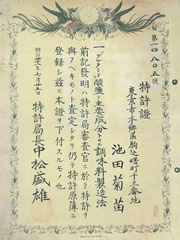 第一四八〇五號
特許證
東京市本郷區駒込曙町十二番地
池田菊苗
一、「グルタミン」酸鹽ヲ主要成分トセル調味料製造法
前記發明ハ特許局審査官ニ於テ特許ヲ
與フヘキモノト査定シタリ仍テ特許原簿ニ
登録シ茲ニ本證ヲ下付スルモノ也
明治四十一年七月廿五日
特許局長中松盛雄